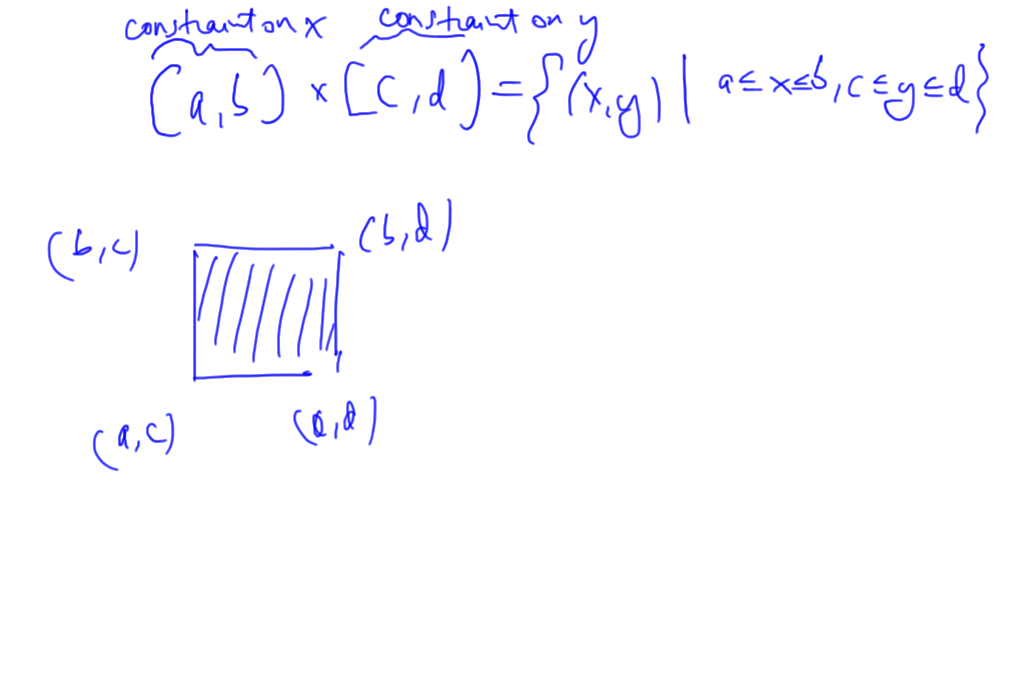 constraint on x constraint on y
[a,b] × [c,d] = {(x,y) | a≤x≤b, c≤y≤d}
(b,c) (b,d)
(a,c) (a,d)